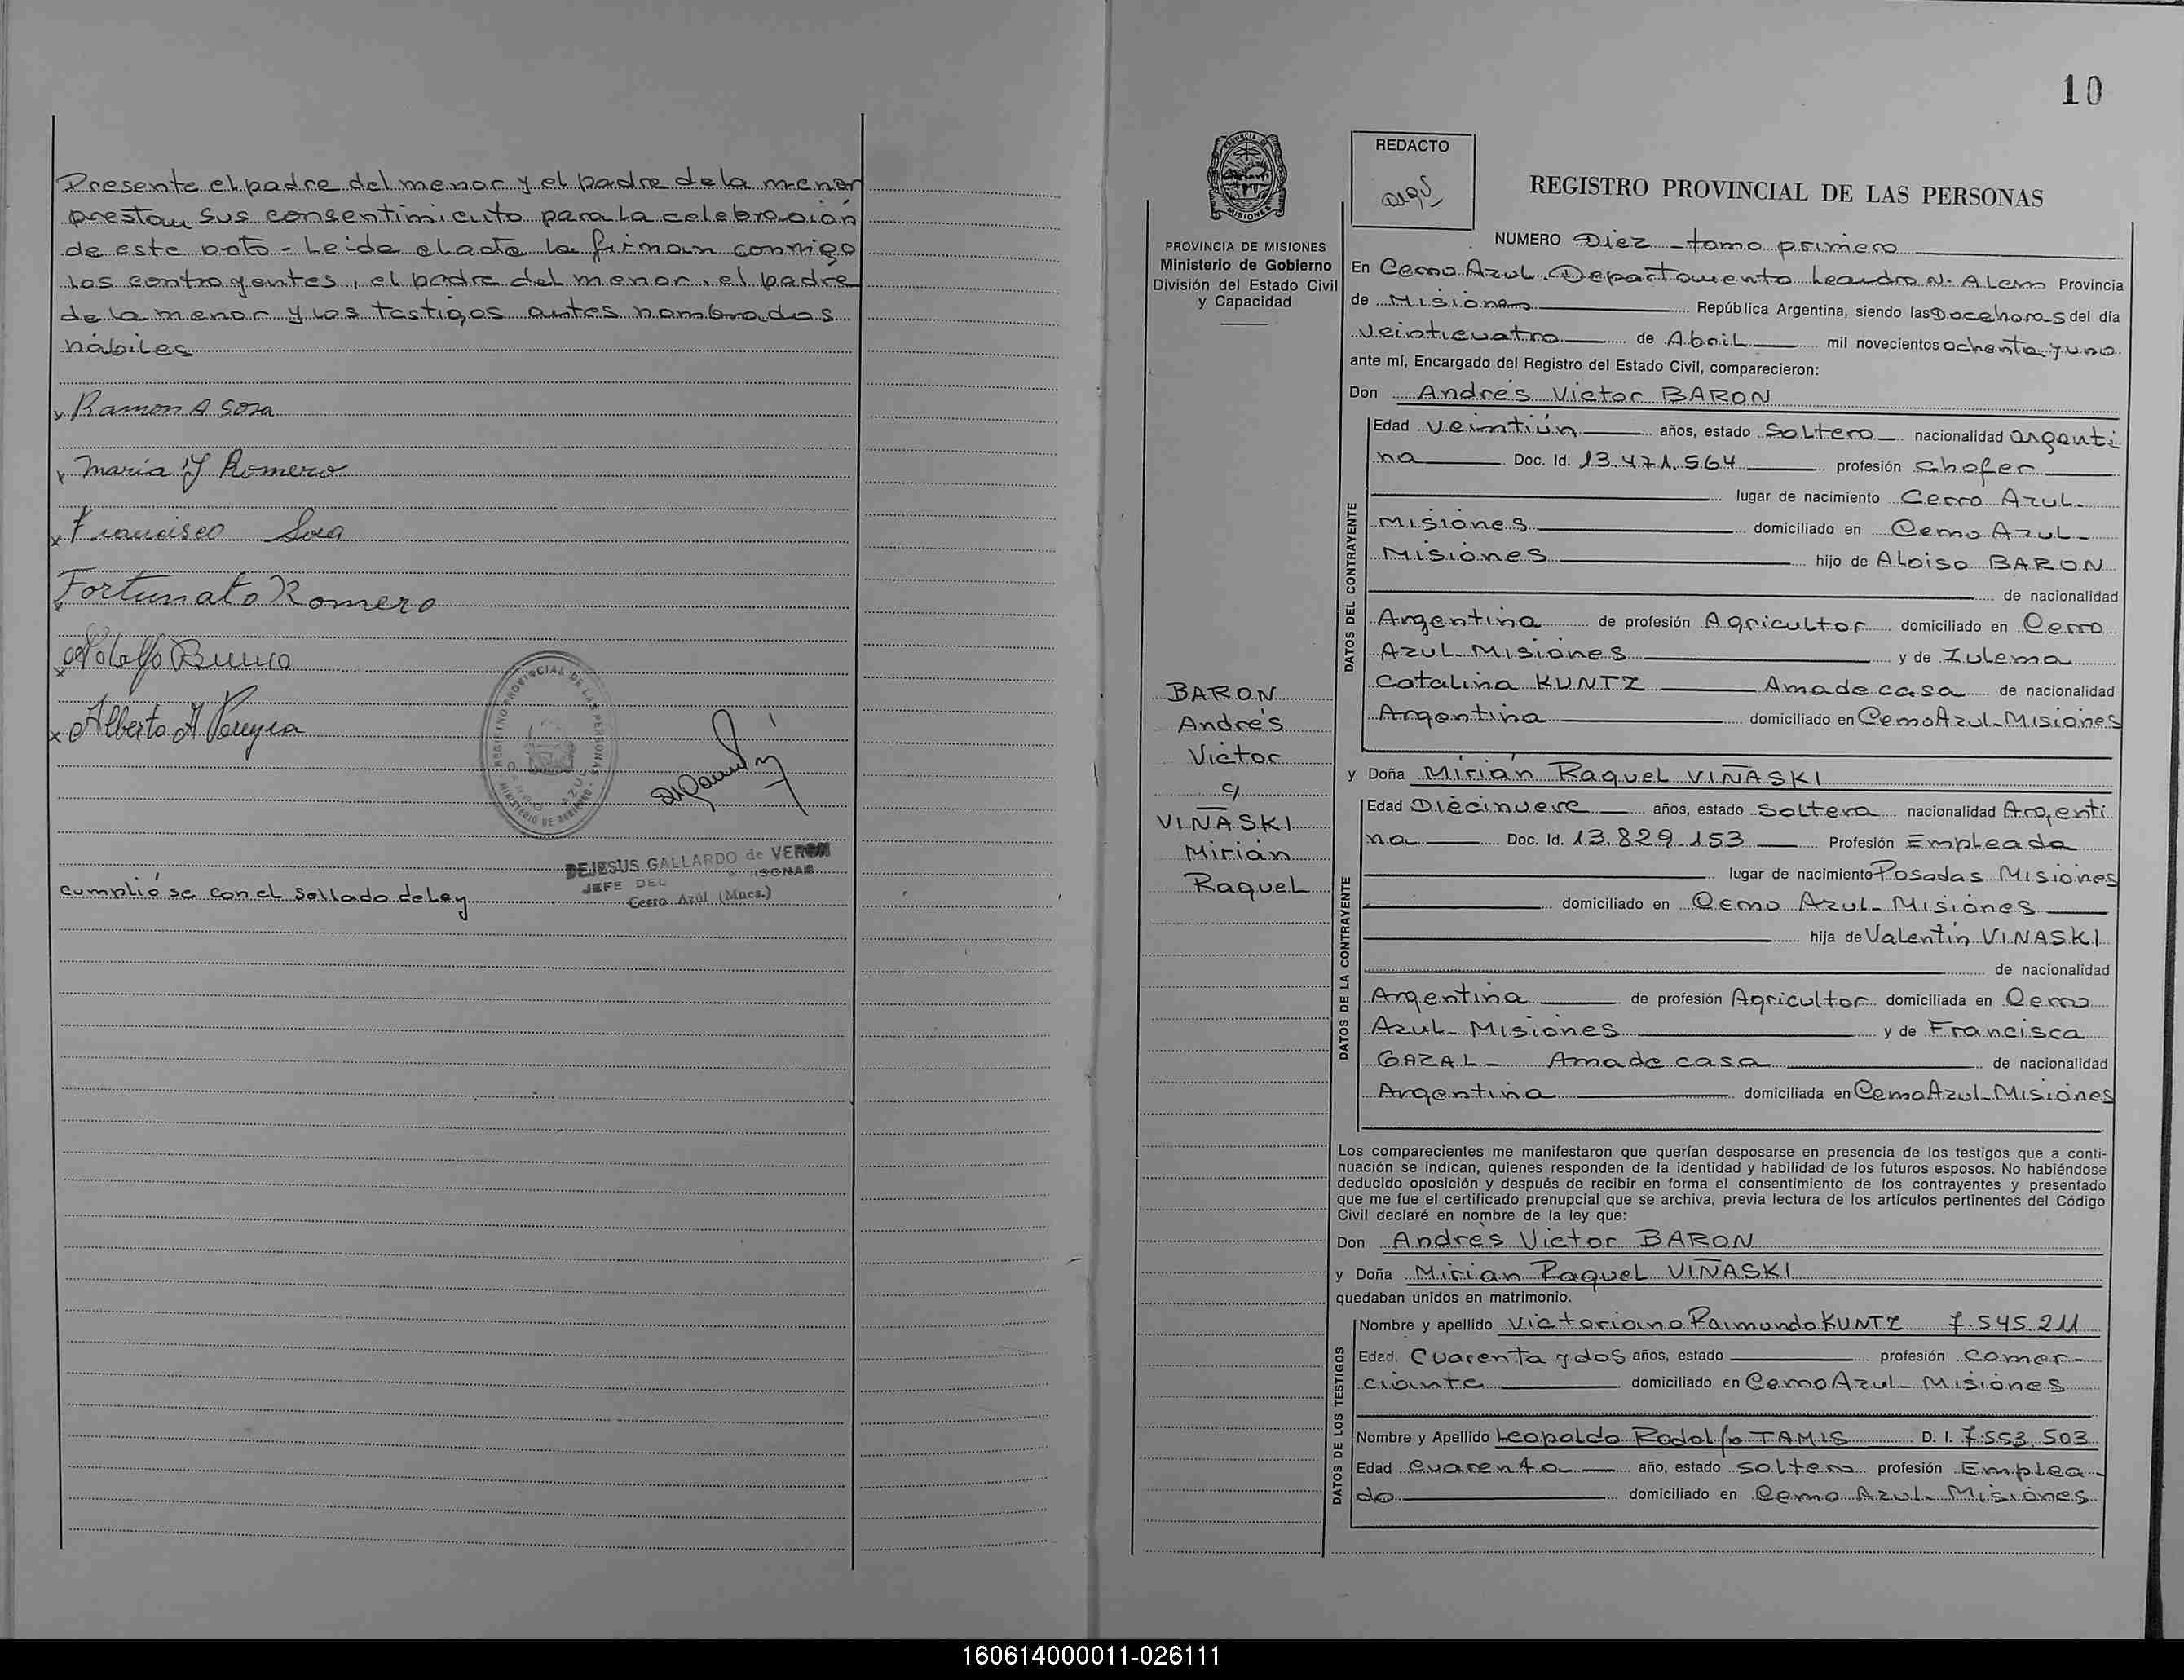 Presente el padre del menor y el padre de la menor
prestan sus consentimiento para la celebración
de este acto - Leida el acta la firman conmigo
los contrayentes, el padre del menor, el padre
de la menor y los testigos antes nombrados
hábiles
x Ramon A Sosa
x Maria Y Romero
x Francisco Sosa
x Fortunato Romero
x Adolfo
x Alberto A Pereyra
REGISTRO PROVINCIAL DE LAS PERSONAS
MINISTERIO DE GOBIERNO
CERRO AZUL
DEJESUS GALLARDO de VERON
JEFE DEL
Cerro Azúl (Mnes.)
Cumplió se con el Sellado de Ley
10
PROVINCIA DE MISIONES
Ministerio de Gobierno
División del Estado Civil
y Capacidad
REDACTO
REGISTRO PROVINCIAL DE LAS PERSONAS
NUMERO Diez - tomo primero
En Cerro Azul. Departamento Leandro N. Alem Provincia
de Misiones República Argentina, siendo las Doce horas del día
Veinticuatro de Abril mil novecientos ochenta y uno
ante mí, Encargado del Registro del Estado Civil, comparecieron:
Don Andrés Victor BARON
DATOS DEL CONTRAYENTE
Edad Veintiún años, estado Soltero nacionalidad argenti
na Doc. Id. 13.471.564 profesión chofer
lugar de nacimiento Cerro Azul-
Misiones domiciliado en Cerro Azul-
Misiones hijo de Aloiso BARON
de nacionalidad
Argentina de profesión Agricultor domiciliado en Cerro
Azul-Misiones y de Zulema
Catalina KUNTZ Ama de casa de nacionalidad
Argentina domiciliado en Cerro Azul-Misiones
BARON
Andrés
Victor
c/
VIÑASKI
Mirián
Raquel
y Doña Mirián Raquel VIÑASKI
DATOS DE LA CONTRAYENTE
Edad Diécinueve años, estado Soltera nacionalidad Argenti
na Doc. Id. 13.829.153 Profesión Empleada
lugar de nacimiento Posadas Misiones
domiciliado en Cerro Azul-Misiones
hija de Valentín VINASKI
de nacionalidad
Argentina de profesión Agricultor domiciliada en Cerro
Azul-Misiones y de Francisca
GAZAL- Ama de casa de nacionalidad
Argentina domiciliada en Cerro Azul-Misiones
Los comparecientes me manifestaron que querían desposarse en presencia de los testigos que a conti-
nuación se indican, quienes responden de la identidad y habilidad de los futuros esposos. No habiéndose
deducido oposición y después de recibir en forma el consentimiento de los contrayentes y presentado
que me fue el certificado prenupcial que se archiva, previa lectura de los artículos pertinentes del Código
Civil declaré en nombre de la ley que:
Don Andrés Victor BARON
y Doña Mirian Raquel VIÑASKI
quedaban unidos en matrimonio.
DATOS DE LOS TESTIGOS
Nombre y apellido Victoriano Raimundo KUNTZ 7.545.211
Edad. Cuarenta y dos años, estado profesión comer-
ciante domiciliado en Cerro Azul-Misiones
Nombre y Apellido Leopoldo Rodolfo TAMIS D. I. 7.553.503
Edad Cuarenta año, estado soltero profesión Emplea-
do domiciliado en Cerro Azul-Misiones
160614000011-026111